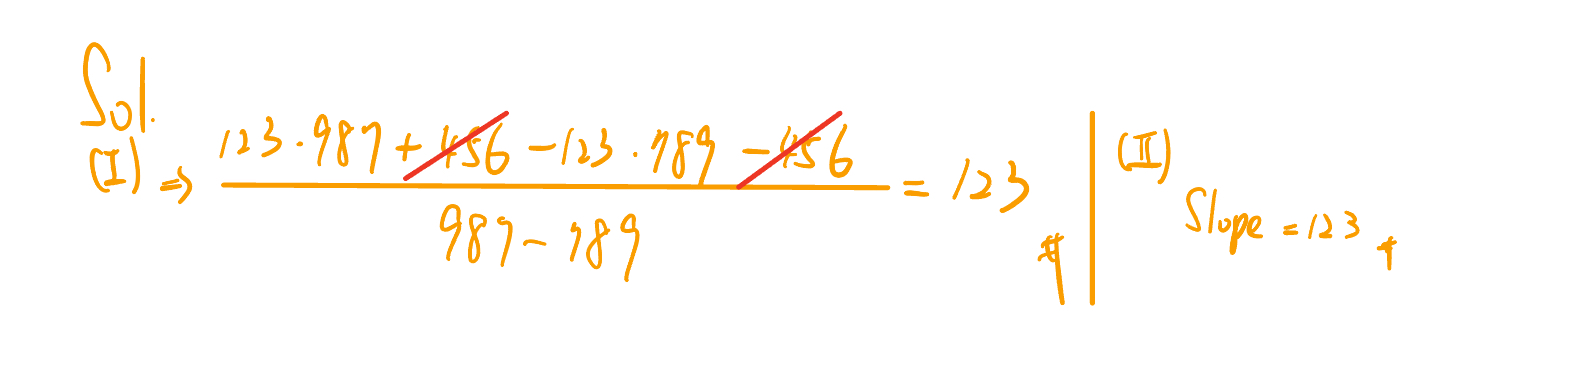 Sol.
(I) ⇒ (123·987 + 456 - 123·789 - 456) / (987 - 789) = 123 #
(II)
Slope = 123 #